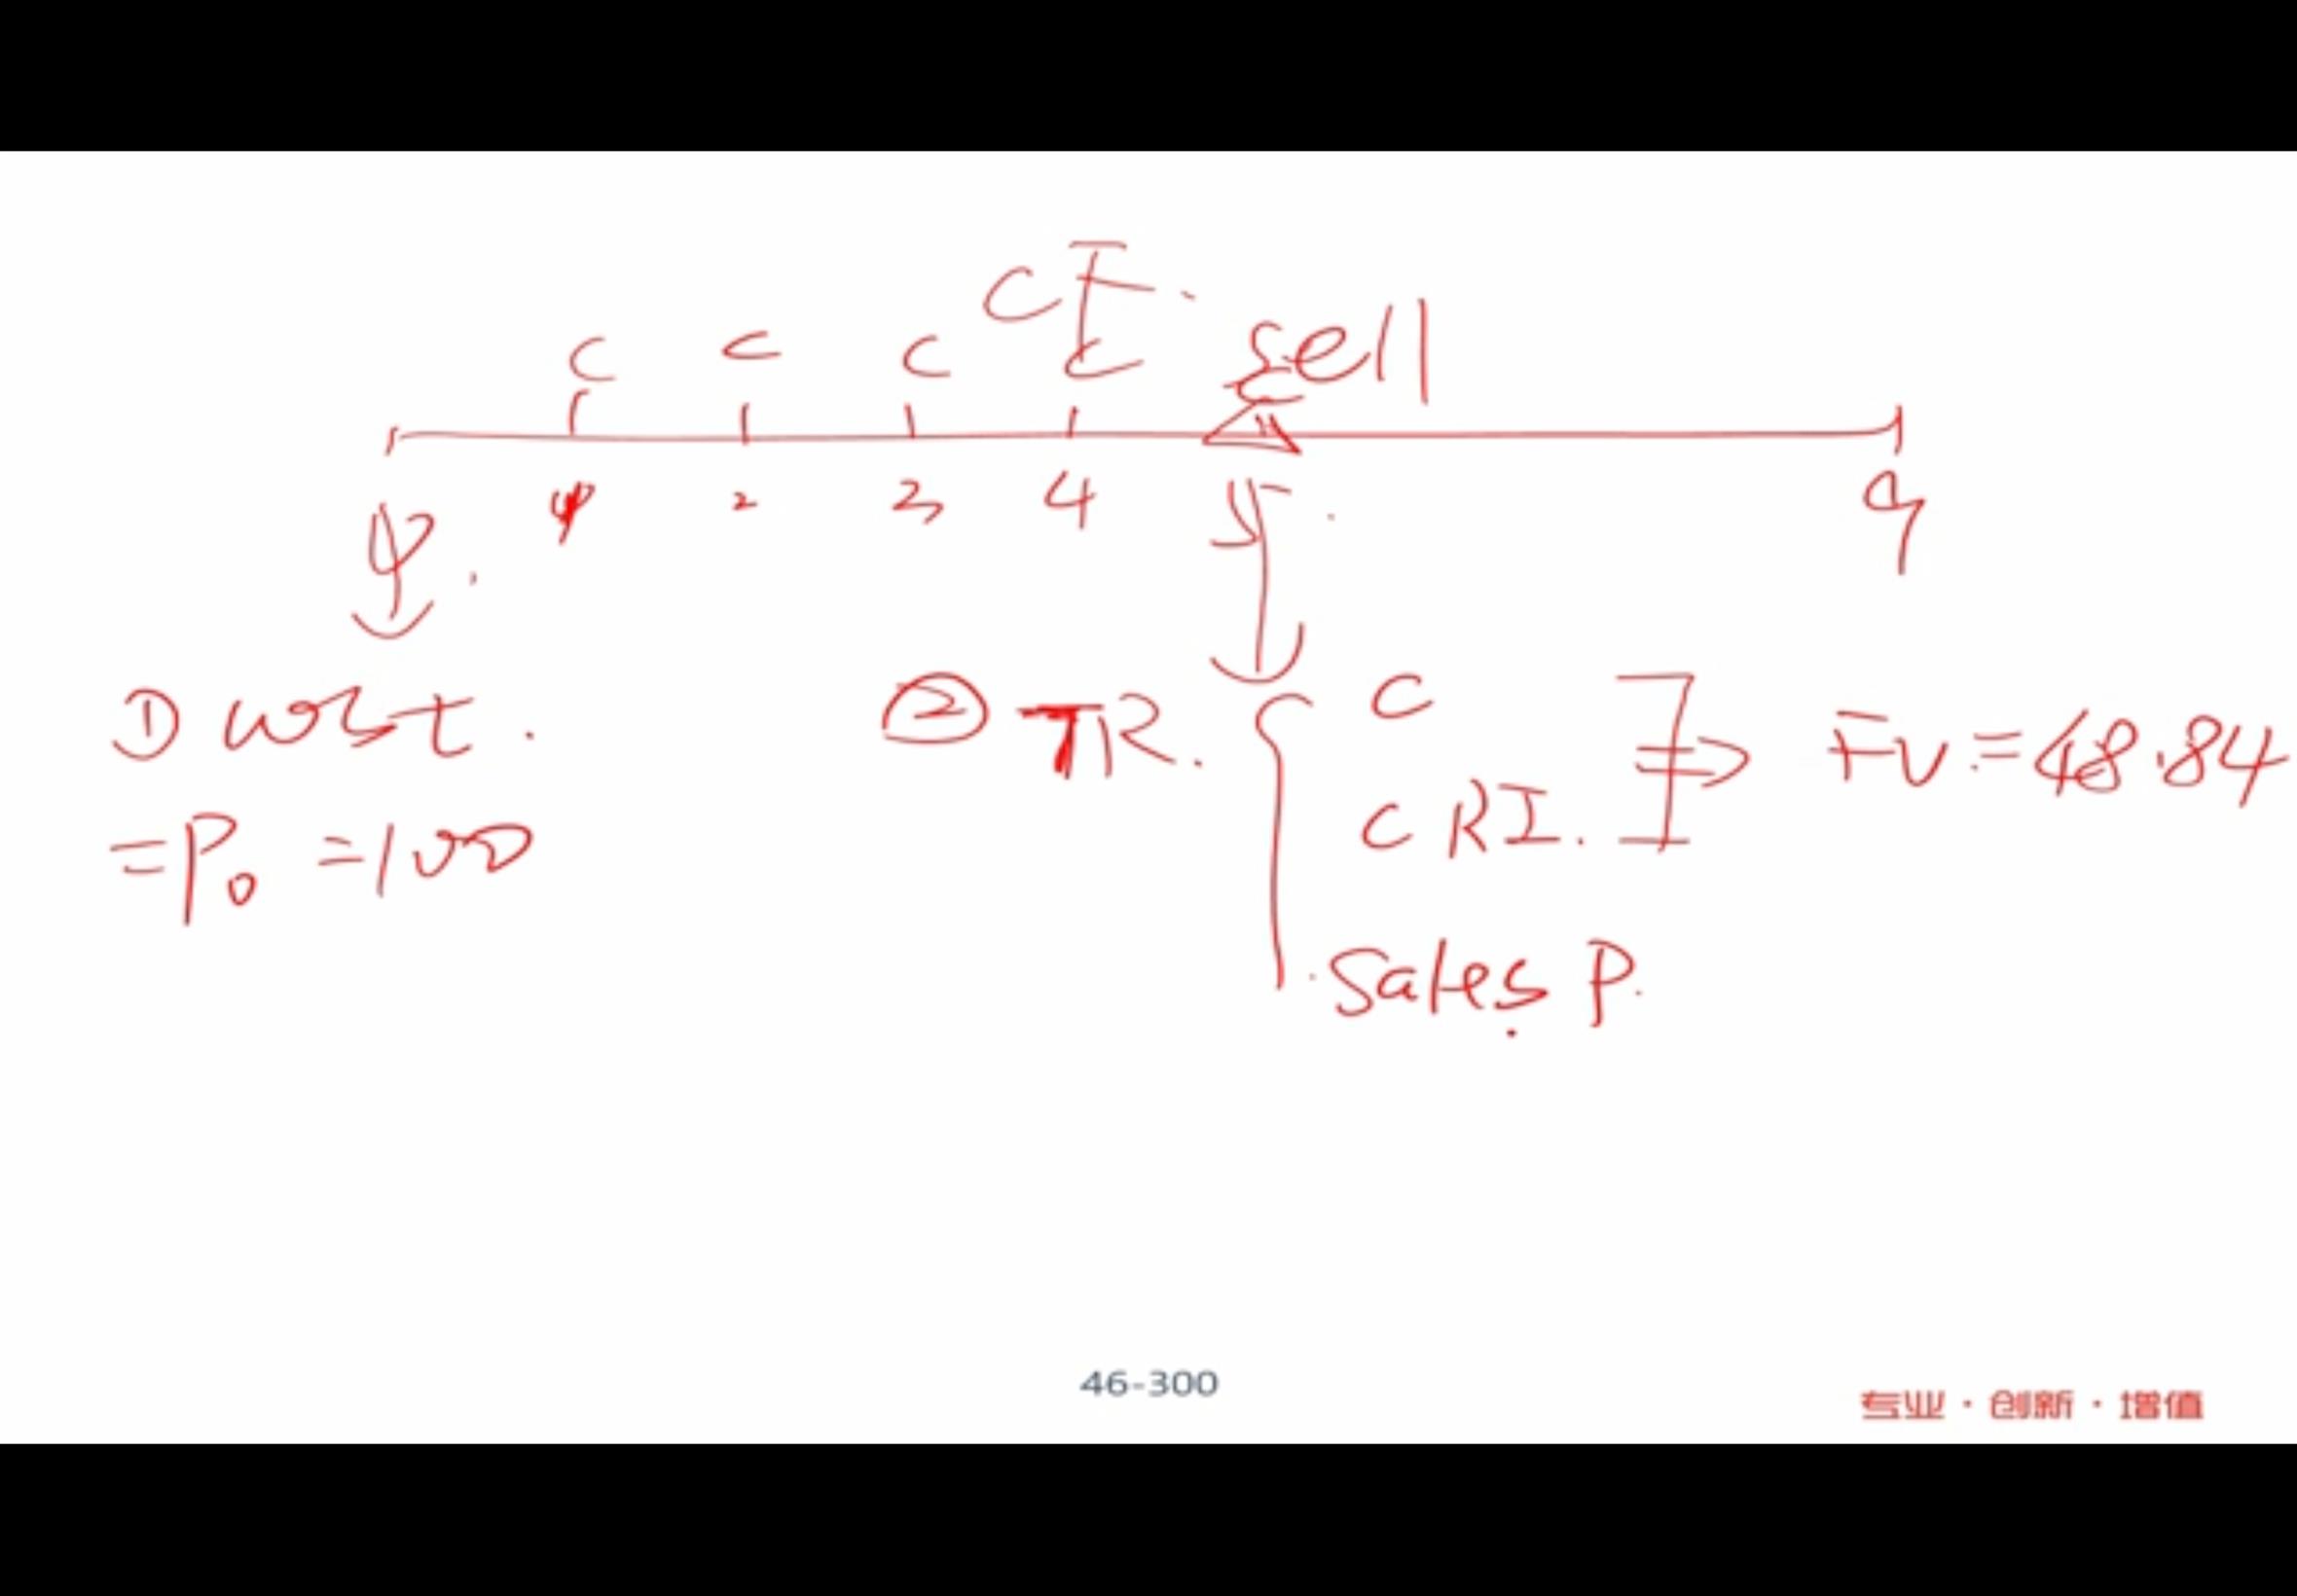 CF.
sell
C C C C C
2 3 4 5 9
① cost. ② TR. C
CRI. ⇒ FV = 48.84
= P₀ = 100
Sales P.
46-300
专业·创新·增值